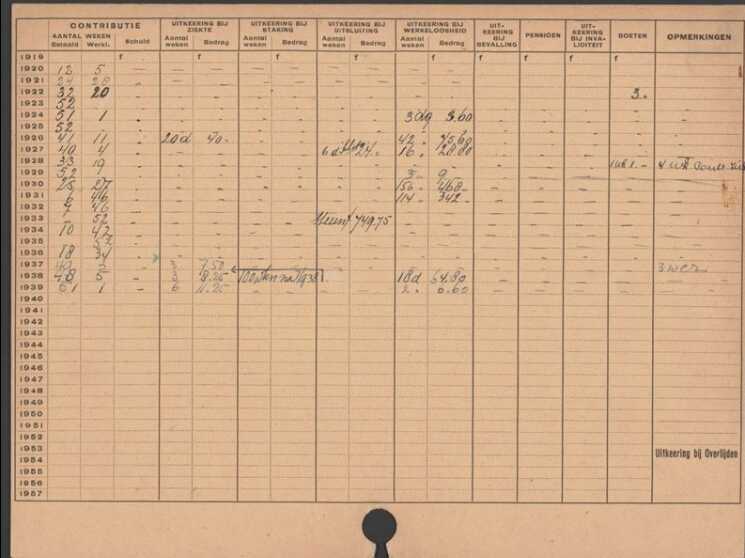 CONTRIBUTIE UITKEERING BIJ ZIEKTE UITKEERING BIJ STAKING UITKEERING BIJ UITSLUITING UITKEERING BIJ WERKELOOSHEID UIT- KEERING BIJ BEVALLING PENSIOEN UIT- KEERING BIJ INVA- LIDITEIT BOETEN OPMERKINGEN
AANTAL WEKEN Betaald Werkl. Schuld Aantal weken Bedrag Aantal weken Bedrag Aantal weken Bedrag Aantal weken Bedrag
1919 f f f f f f f f f
1920 13 5
1921 24 28
1922 32 20 3.
1923 52
1924 51 1 3 dg 3.60
1925 52
1926 41 11 20 d 40.- 42 - 75.60
1927 40 4 6 d 24.- 16 - 28.80
1928 33 19 1.- 4 wk
1929 52 1 3 - 9
1930 25 27 156 - 468 -
1931 6 46 114 - 342 -
1932 46
1933 52 Steunf 749.75
1934 10 42
1935 52
1936 18 34
1937 7.50
1938 48 5 8.25 18 d 64.80
1939 51 1 6 11.25 2 - 6.60
1940
1941
1942
1943
1944
1945
1946
1947
1948
1949
1950
1951
1952
1953 Uitkeering bij Overlijden
1954
1955
1956
1957